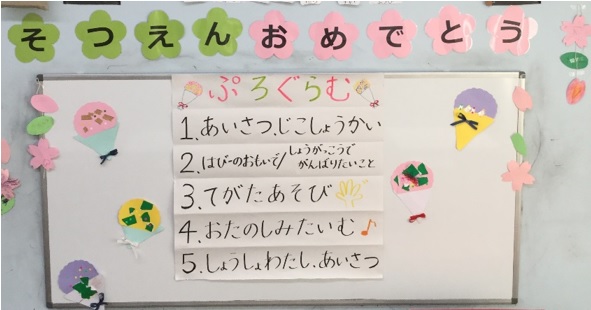 そつえんおめでとう
ぷろぐらむ
1.あいさつ、じこしょうかい
2.はぴーのおもいで/しょうがっこうでがんばりたいこと
3.てがたあそび
4.おたのしみたいむ♪
5.しょうしょわたし、あいさつ